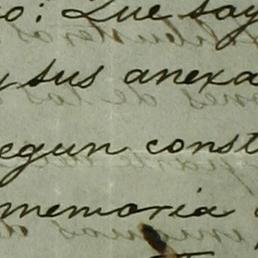 o: Que soy
y sus anexa
egun const
memoria